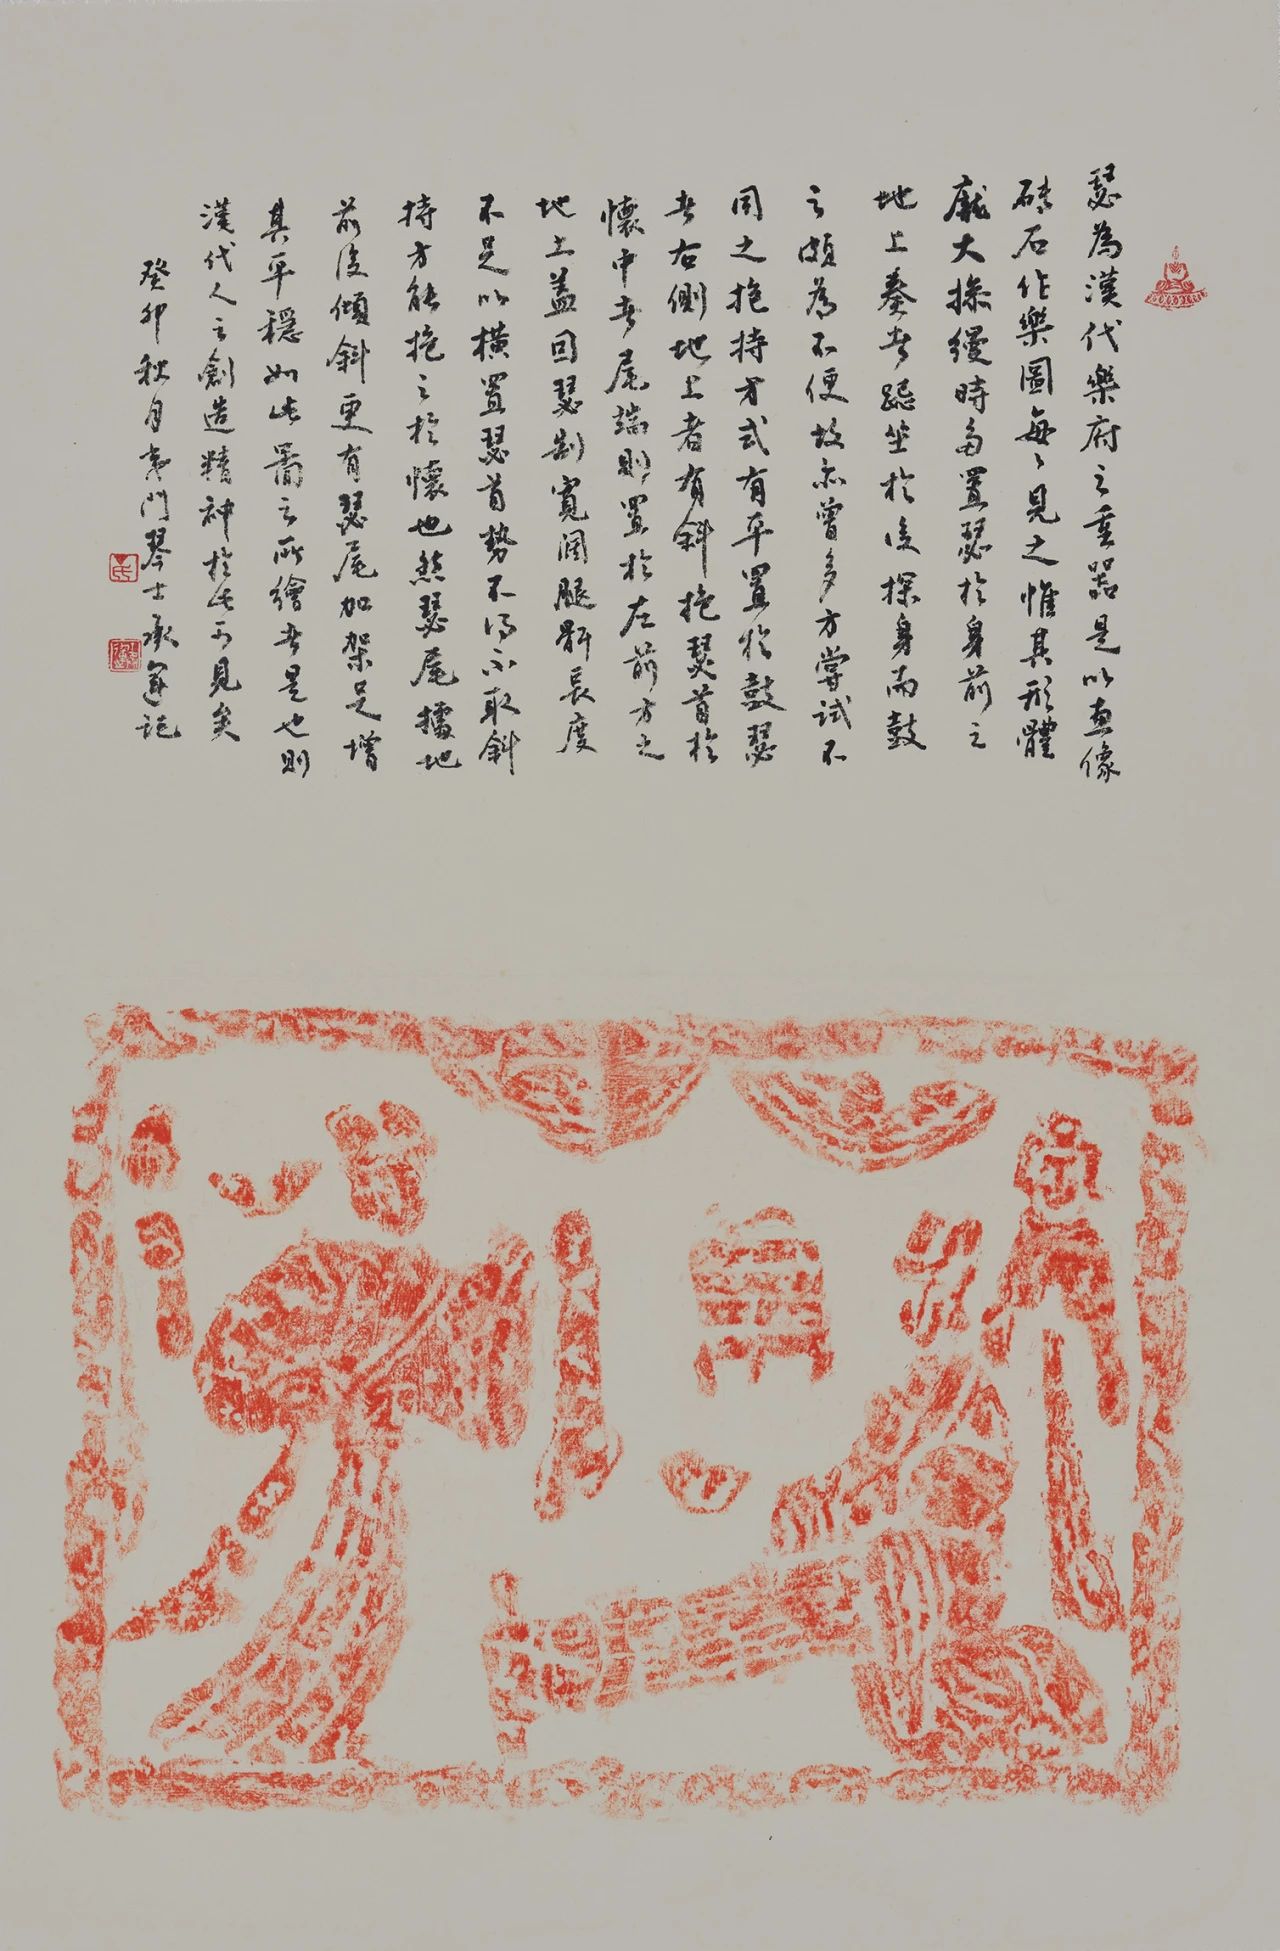 瑟為漢代樂府之重器是以畫像
磚石作樂圖每々見之惟其形體
龐大操縵時多置瑟於身前之
地上奏者跽坐於後探身而鼓
之頗為不便故亦曾多方嘗試不
同之抱持方式有平置於鼓瑟
者右側地上者有斜抱瑟首於
懷中者尾端則置於左前方之
地上蓋因瑟制寬闊腿骭長度
不足以橫置瑟首勢不得不取斜
持方能抱之於懷也然瑟尾擂地
前後傾斜更有瑟尾加架足增
其平穩如此幅之所繪者是也則
漢代人之創造精神於此可見矣
癸卯秋月 門琴士承 記